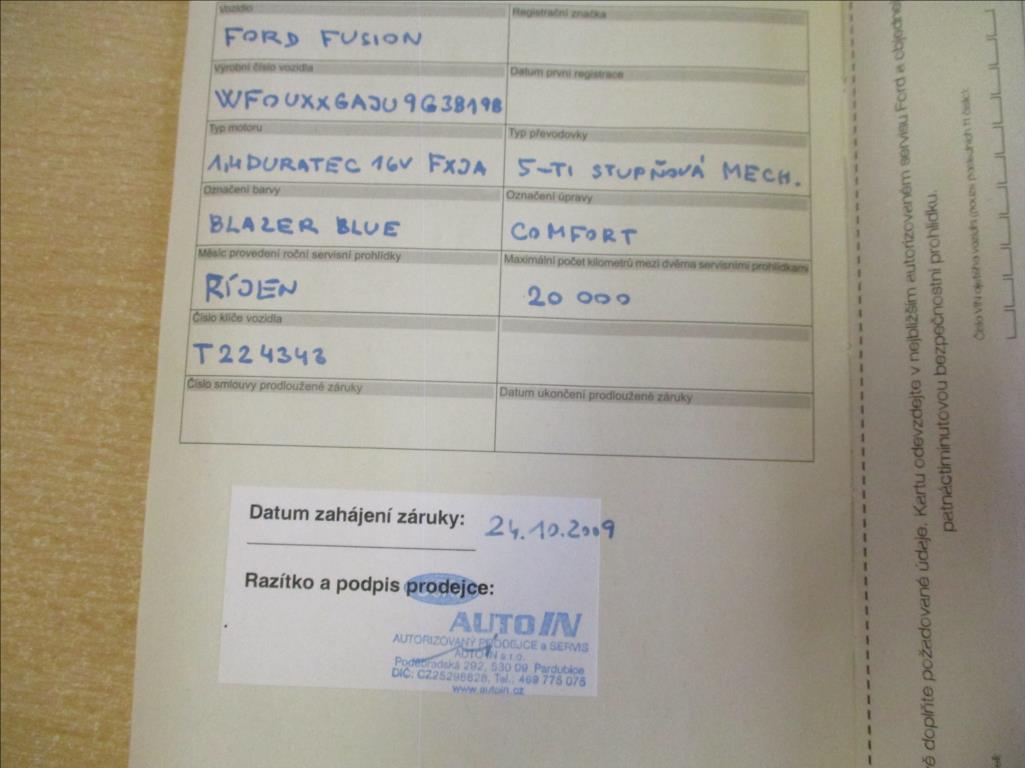 Vozidlo
Registrační značka
FORD FUSION
Výrobní číslo vozidla
Datum první registrace
WF0UXXGAJU9G38198
Typ motoru
Typ převodovky
1,4 DURATEC 16V FXJA
5-TI STUPŇOVÁ MECH.
Označení barvy
Označení úpravy
BLAZER BLUE
COMFORT
Měsíc provedení roční servisní prohlídky
Maximální počet kilometrů mezi dvěma servisními prohlídkami
ŘÍJEN
20 000
Číslo klíče vozidla
T224343
Číslo smlouvy prodloužené záruky
Datum ukončení prodloužené záruky
Datum zahájení záruky: 24.10.2009
Razítko a podpis prodejce:
AUTO IN
AUTORIZOVANÝ PRODEJCE a SERVIS
AUTO IN s.r.o.
Poděbradská 292, 530 09 Pardubice
DIČ: CZ25298828, Tel.: 469 775 075
www.autoin.cz
doplňte požadované údaje. Kartu odevzdejte v nejbližším autorizovaném servisu Ford a
patnáctiminutovou bezpečnostní prohlídku.
Číslo VIN